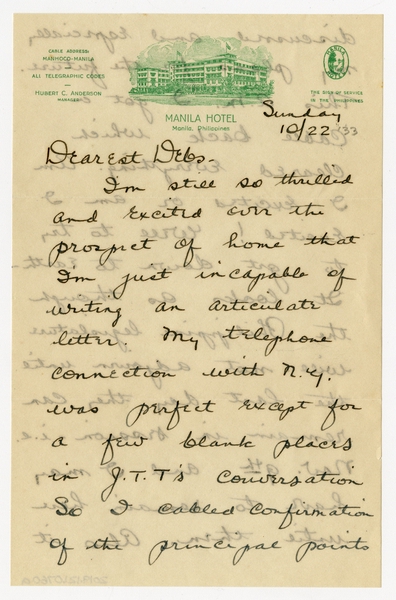 CABLE ADDRESS:
MANHOCO-MANILA
ALL TELEGRAPHIC CODES
HUBERT C. ANDERSON
MANAGER
MANILA HOTEL
Manila, Philippines
MANILA HOTEL
THE SIGN OF SERVICE
IN THE PHILIPPINES
Sunday
10/22 '33
Dearest Debs-
I'm still so thrilled
and excited over the
prospect of home that
I'm just incapable of
writing an articulate
letter. My telephone
connection with N.Y.
was perfect except for
a few blank places
in J.T.T's conversation
So I cabled confirmation
of the principal points